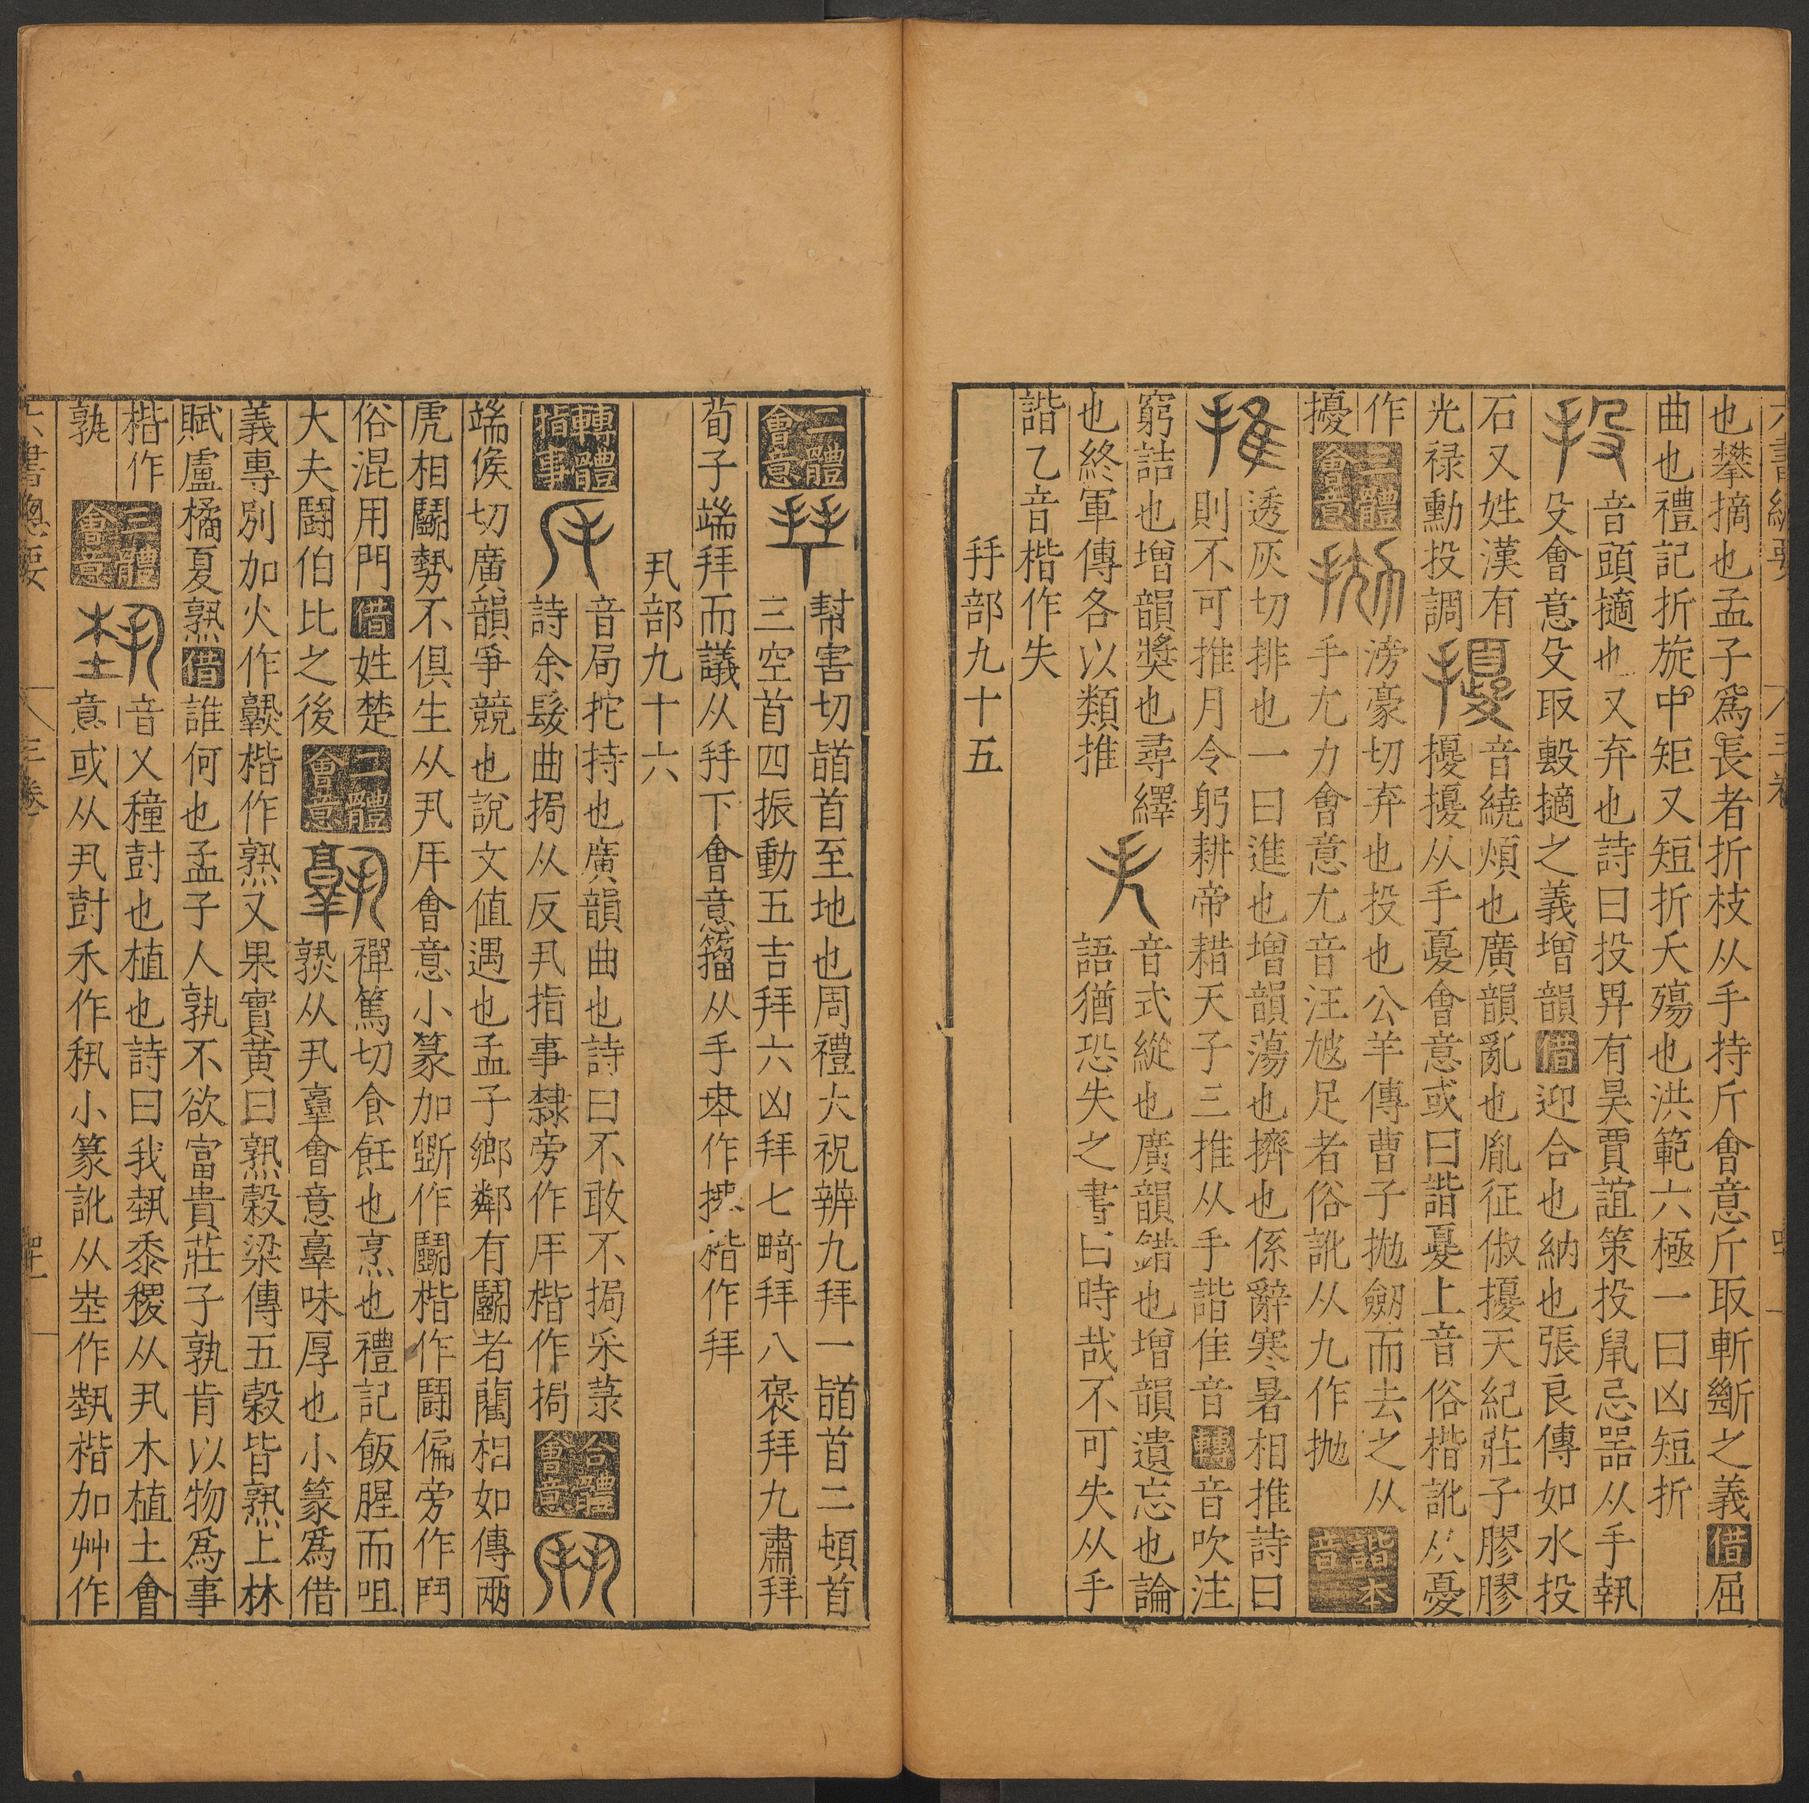 也攀摘也孟子爲長者折枝从手持斤會意斤取斬斷之義借屈
曲也禮記折旋中矩又短折夭殤也洪範六極一曰凶短折
音頭擿也又弃也詩曰投畀有昊賈誼策投鼠忌器从手執
殳會意殳取毄擿之義增韻借迎合也納也張良傳如水投
石又姓漢有
音繞煩也廣韻亂也胤征俶擾天紀莊子膠膠
光禄勳投調
擾擾从手憂會意或曰諧憂上音俗楷訛从憂
作 三體會意
滂豪切弃也投也公羊傳曹子拋劔而去之从
擾
手尢力會意尢音汪尬足者俗訛从九作抛 諧本音
透灰切排也一曰進也增韻蕩也擠也係辭寒暑相推詩曰
則不可推月令躬耕帝耤天子三推从手諧隹音轉音吹注
窮詰也增韻奬也尋繹
音式縱也廣韻錯也增韻遺忘也論
也終軍傳各以類推
語猶恐失之書曰時哉不可失从手
諧乙音楷作失
幇害切𩒨首至地也周禮大祝辨九拜一𩒨首二頓首
二體會意
三空首四振動五吉拜六凶拜七畸拜八褒拜九肅拜
荀子端拜而議从
下會意籀从手
楷作拜
丮部九十六
轉體指事
音局拕持也廣韻曲也詩曰不敢不挶采菉
詩余髮曲挶从反丮指事隸旁作
楷作挶 合體會意
端候切廣韻爭競也說文値遇也孟子鄉鄰有鬭者藺相如傳兩
虎相鬭勢不俱生从丮
會意小篆加斲作鬭楷作鬪偏旁作鬥
俗混用門借姓楚
禪篤切食飪也烹也禮記飯腥而咀
大夫鬪伯比之後 二體會意
从丮𦎫會意𦎫味厚也小篆爲借
義專別加火作
楷作熟又果實黄曰熟穀梁傳五穀皆熟上林
賦盧橘夏熟借誰何也孟子人孰不欲富貴莊子孰肯以物爲事
楷作
音乂種尌也植也詩曰我埶黍稷从丮木植土會
孰 三體會意
意或从丮尌禾作
小篆訛从坴作埶楷加艸作